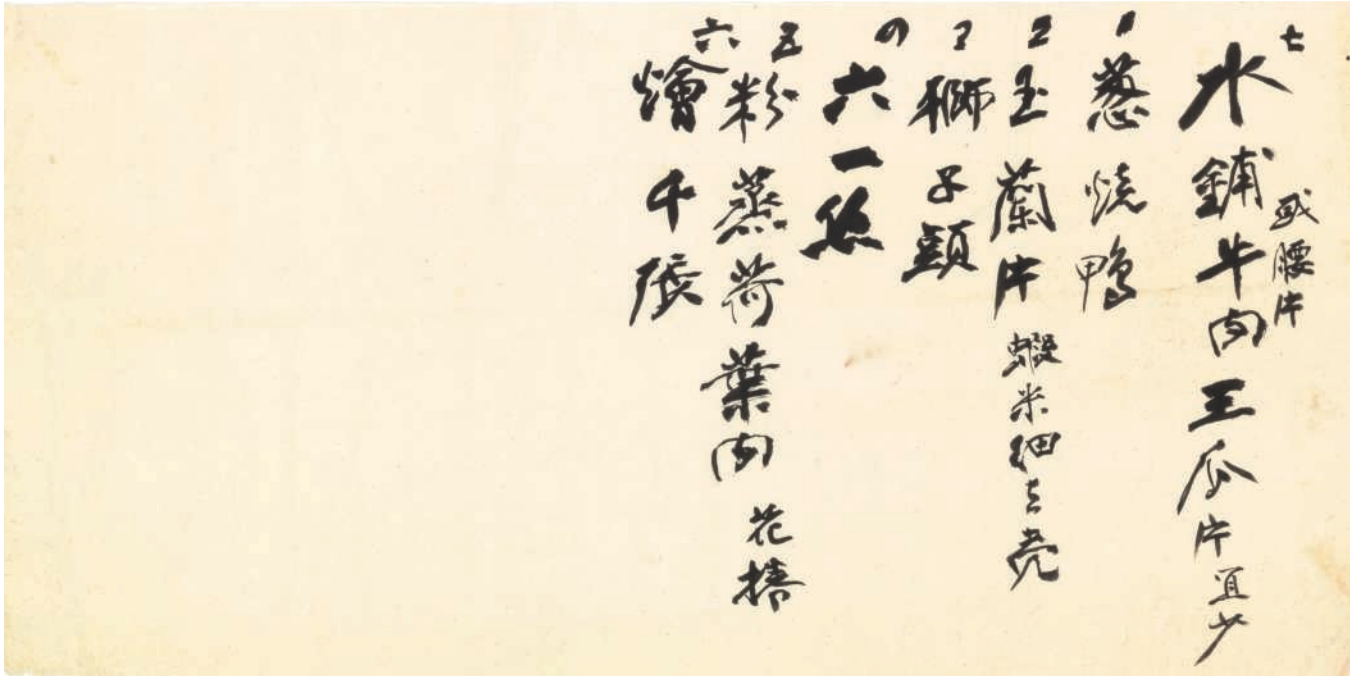 七 水鋪牛肉王瓜片宜少
或腰片
一 葱燒鴨
二 玉蘭片 蝦米細去壳
三 獅子頭
四 六一丝
五 粉蒸荷葉肉 花
六 燴千張